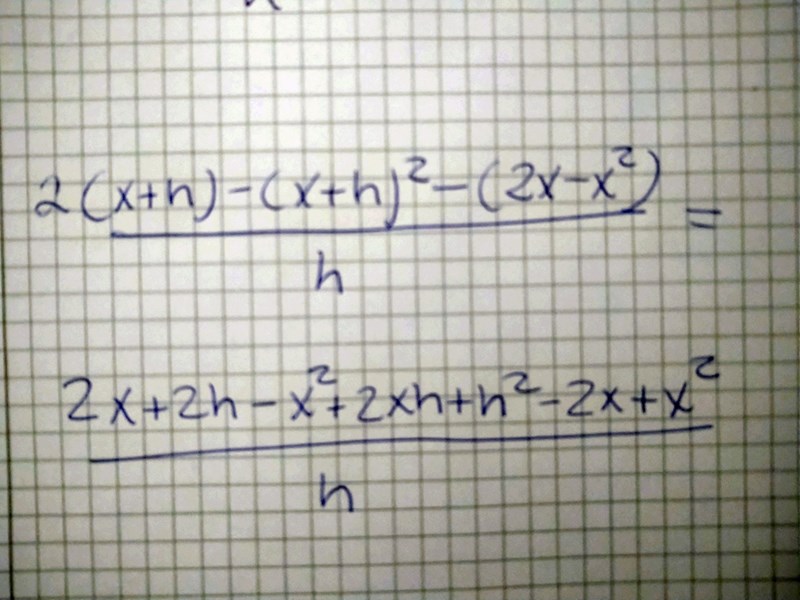 2(x+h)-(x+h)²-(2x-x²) =
h
2x+2h-x²+2xh+h²-2x+x²
h